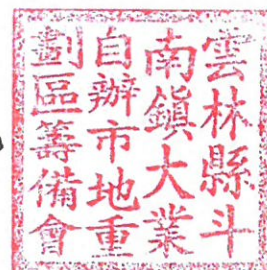 雲林縣斗
南鎮大業
自辦市地重
劃區籌備會